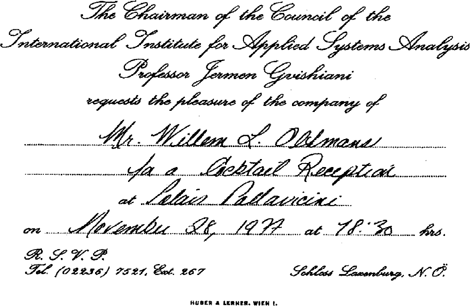 The Chairman of the Council of the
International Institute for Applied Systems Analysis
Professor Jermen Gvishiani
requests the pleasure of the company of
Mr. Willem L. Oltmans
for a Cocktail Reception
at Palais Pallavicini
on November 28, 1977 at 18:30 hrs.
R. S. V. P.
Tel. (02236) 7521, Ext. 267
Schloss Laxenburg, N.Ö.
HUBER & LERNER, WIEN I.